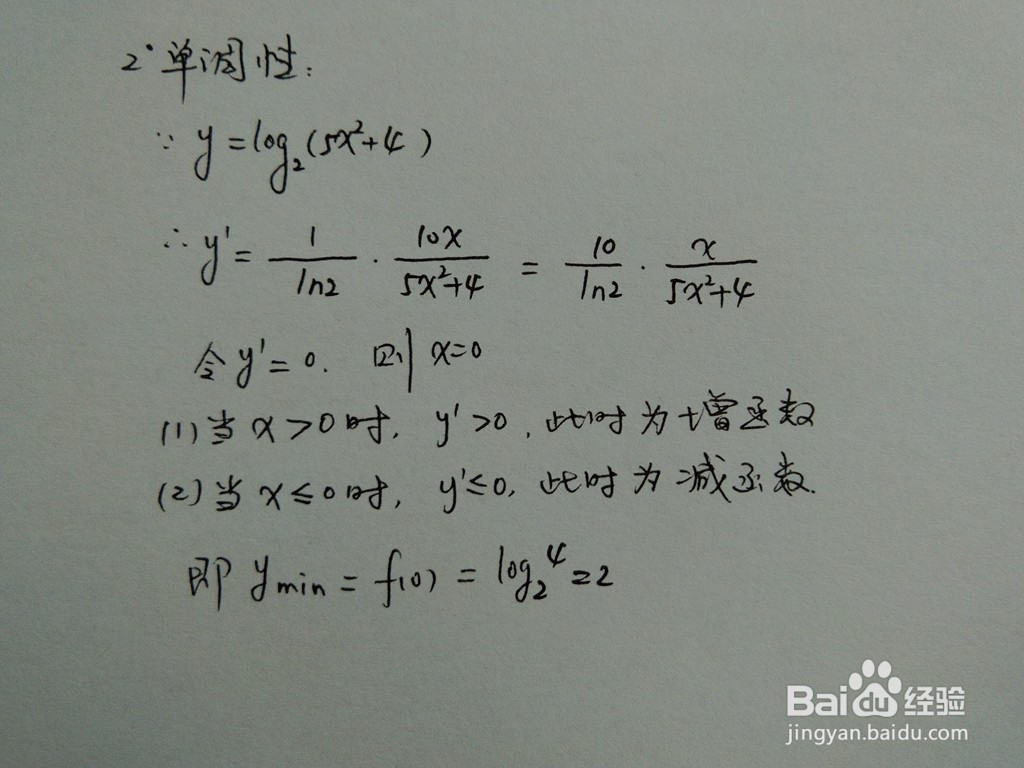 2° 单调性:
∵ y = log₂(5x²+4)
∴ y' = 1/ln2 · 10x/(5x²+4) = 10/ln2 · x/(5x²+4)
令 y' = 0. 则 x=0
(1) 当 x>0 时, y'>0, 此时为增函数
(2) 当 x≤0 时, y'≤0, 此时为减函数.
即 y min = f(0) = log₂4 = 2
Baidu经验
jingyan.baidu.com